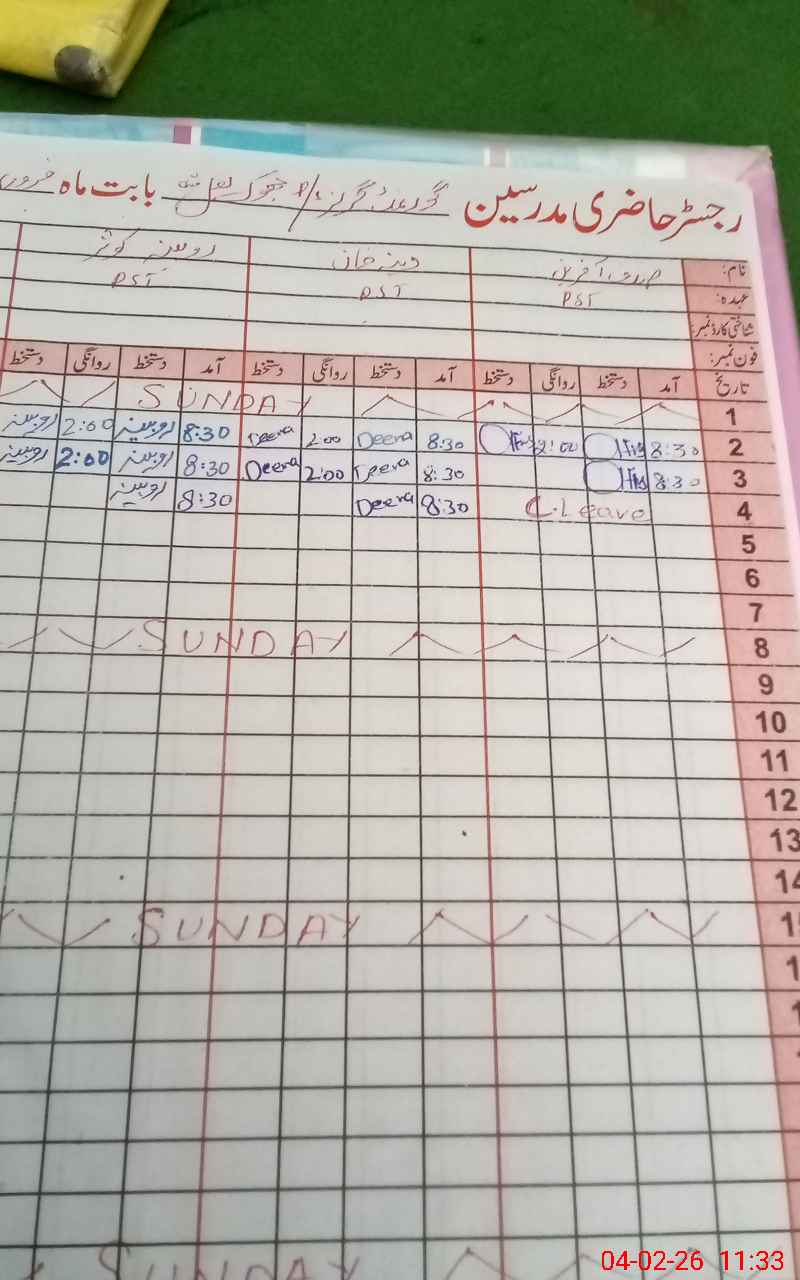 رجسٹر حاضری مدرسین گورنمنٹ گرلز بابت ماہ فروری
نام: آفرین دینہ خان روبینہ کوثر
عہدہ: PST PST PST
شناختی کارڈ نمبر:
فون نمبر:
تاریخ آمد دستخط روانگی دستخط آمد دستخط روانگی دستخط آمد دستخط روانگی دستخط
1 SUNDAY
2 8:30 2:00 8:30 Deera 2:00 Deera 8:30 روبینہ 2:00 روبینہ
3 8:30 8:30 Deera 2:00 Deera 8:30 روبینہ 2:00 روبینہ
4 C.Leave 8:30 Deera 8:30 روبینہ
5
6
7
8 SUNDAY
9
10
11
12
13
14
SUNDAY
SUNDAY
04-02-26 11:33